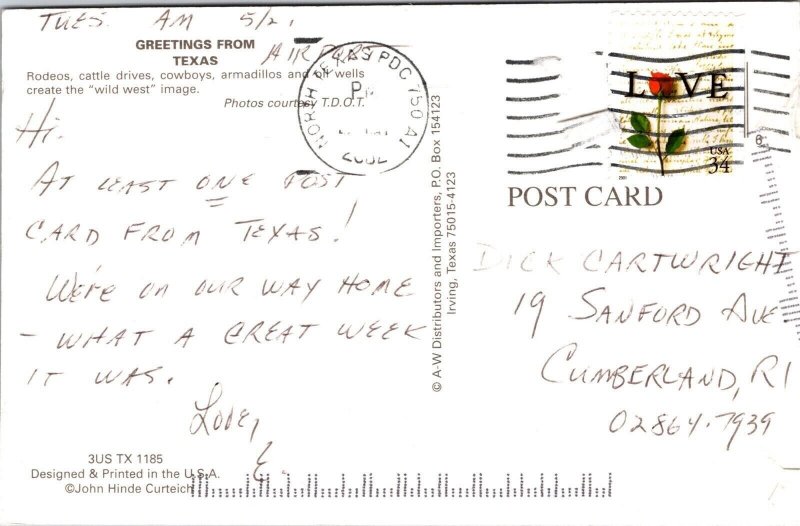 TUES. AM 5/21
AIRPORT
GREETINGS FROM
TEXAS
Rodeos, cattle drives, cowboys, armadillos and oil wells
create the "wild west" image.
Photos courtesy T.D.O.T.
Hi.
AT LEAST ONE POST
CARD FROM TEXAS!
WE'RE ON OUR WAY HOME
- WHAT A GREAT WEEK
IT WAS.
Love,
E.
3US TX 1185
Designed & Printed in the U.S.A.
©John Hinde Curteich
© A-W Distributors and Importers, P.O. Box 154123
Irving, Texas 75015-4123
NORTH TEXAS PDC 750 A1
PM
2002
LOVE
USA
34
2001
POST CARD
DICK CARTWRIGHT
19 SANFORD AVE
CUMBERLAND, RI
02864-7939